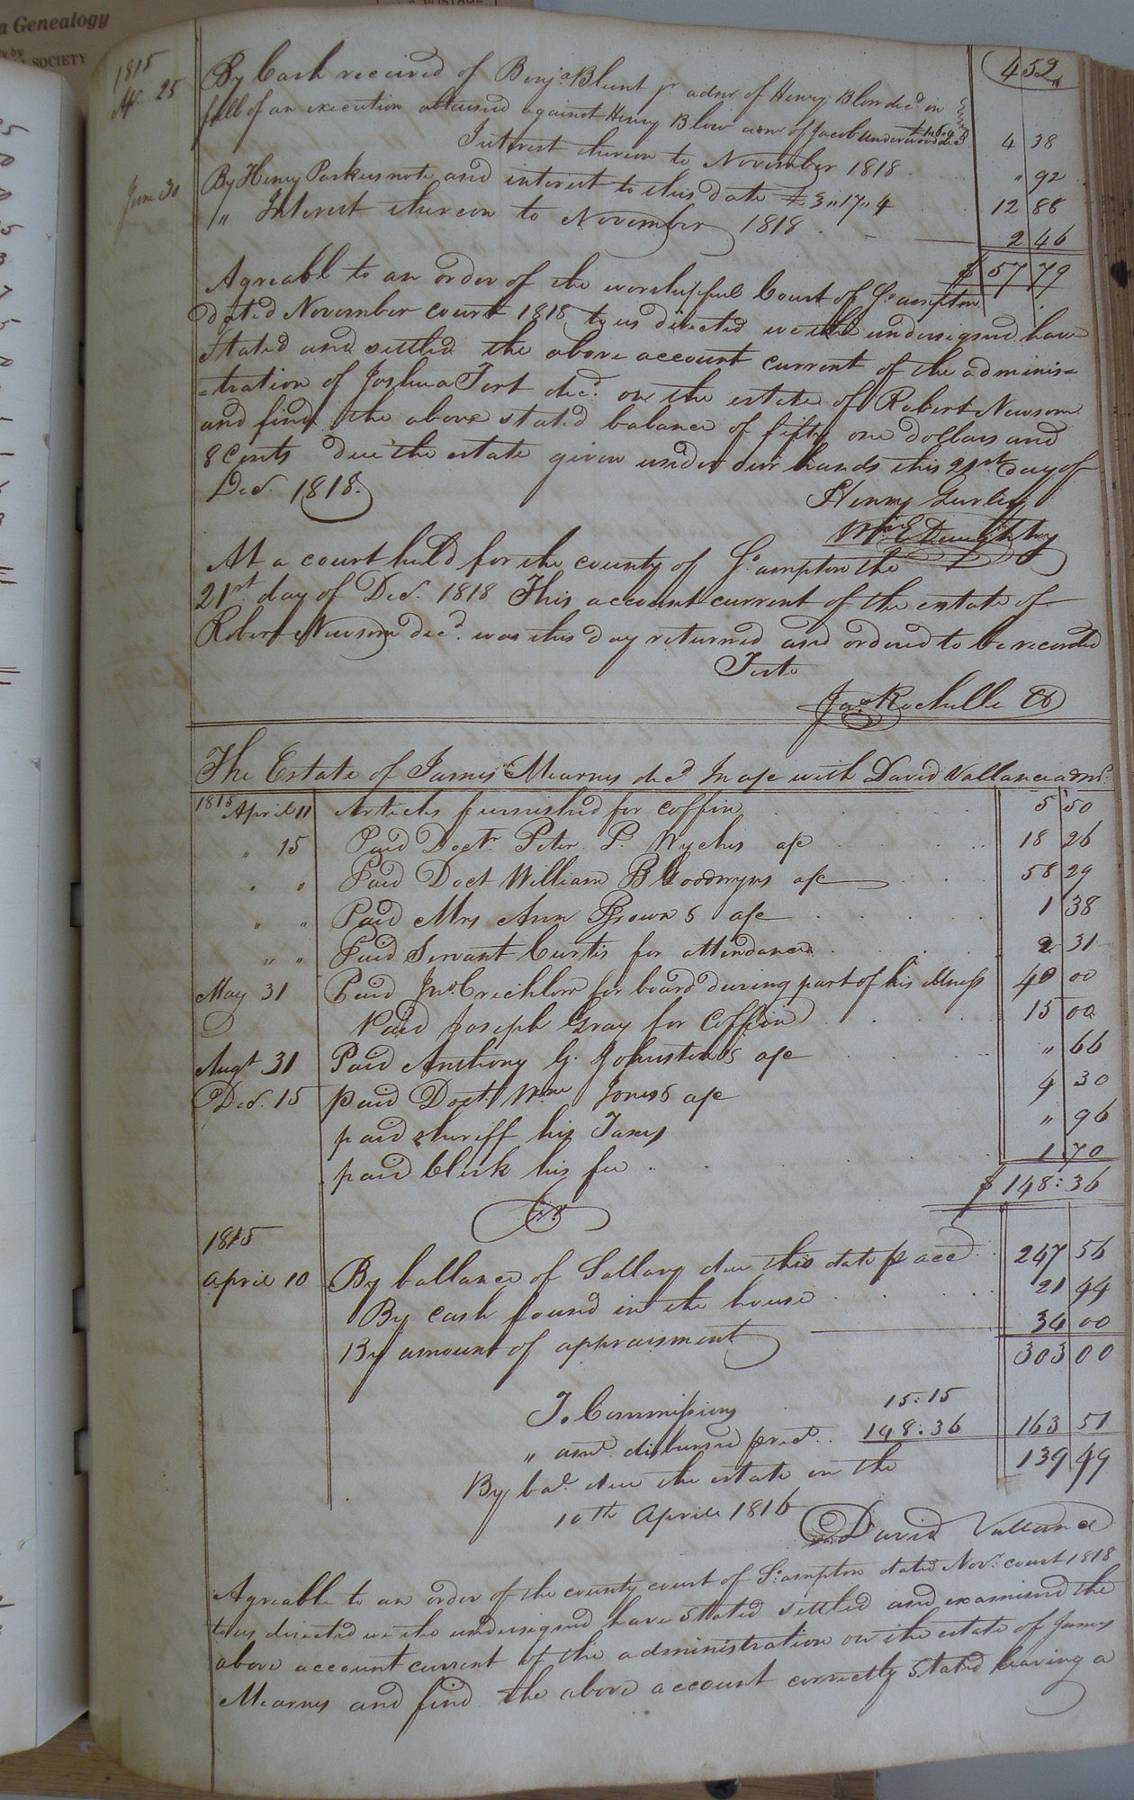 a Genealogy
SOCIETY
452
1815
Ap. 25 By Cash received of Benja. Blunt jr admr of Henry Blow decd. in
full of an execution obtained against Henry Blow admr of Jacob Underwood decd. 4 38
Interest thereon to November 1818 " 92
June 30 By Henry Parkers note and interest to this date £3"17"4 12 88
" Interest thereon to November 1818 2 46
$ 57 79
Agreable to an order of the worshipful Court of So.ampton
dated November court 1818 to us directed we the undersigned have
stated and settled the above account current of the adminis=
=tration of Joshua Fort decd. on the estate of Robert Newsom
and find the above stated balance of fifty one dollars and
8 Cents due the estate given under our hands this 21st day of
Decr. 1818.
Henry Gurley
At a court held for the county of So.ampton the
21st. day of Decr. 1818 This account current of the estate of
Robert Newsom decd. was this day returned and ordered to be recorded
Teste
Jas Rochelle Cl
The Estate of James Mearnes decd In a/c with David Vallance admr.
1815 April 11 Articles furnished for coffin 5 50
" 15 Paid Doctr Peter P. Wyches a/c 18 26
" " Paid Doct William B Goodwyns a/c 58 29
" " Paid Mrs Ann Browns a/c 1 38
" " Paid Servant Curtis for attendance 2 31
May 31 Paid Jno Crichlow for board during part of his illness 40 00
Paid Joseph Gray for Coffin 15 00
Augt 31 Paid Anthony G. Johnstons a/c " 66
Decr. 15 paid Doct Wm Jones a/c 4 30
paid sheriff his Taxes " 96
paid Clerk his fee 1 70
$ 148:36
Cr
1815
April 10 By ballance of Sallary due this date pr acct 247 56
By cash found in the house 21 44
By amount of appraisment 34 00
303 00
To Commissions 15:15
" amt. disbursed 148:36 163 51
By bal. due the estate on the 139 49
10th April 1816
David Vallance
Agreable to an order of the county court of So.ampton dated Nov. court 1818
to us directed we the undersigned have stated settled and examined the
above account current of the administration on the estate of James
Mearnes and find the above account correctly stated leaving a